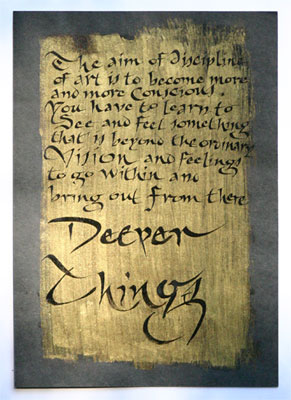 The aim of Discipline
of art is to become more
and more Conscious.
You have to learn to
See and feel something
that is beyond the ordinary
Vision and feelings
to go within and
bring out from there
Deeper
Things